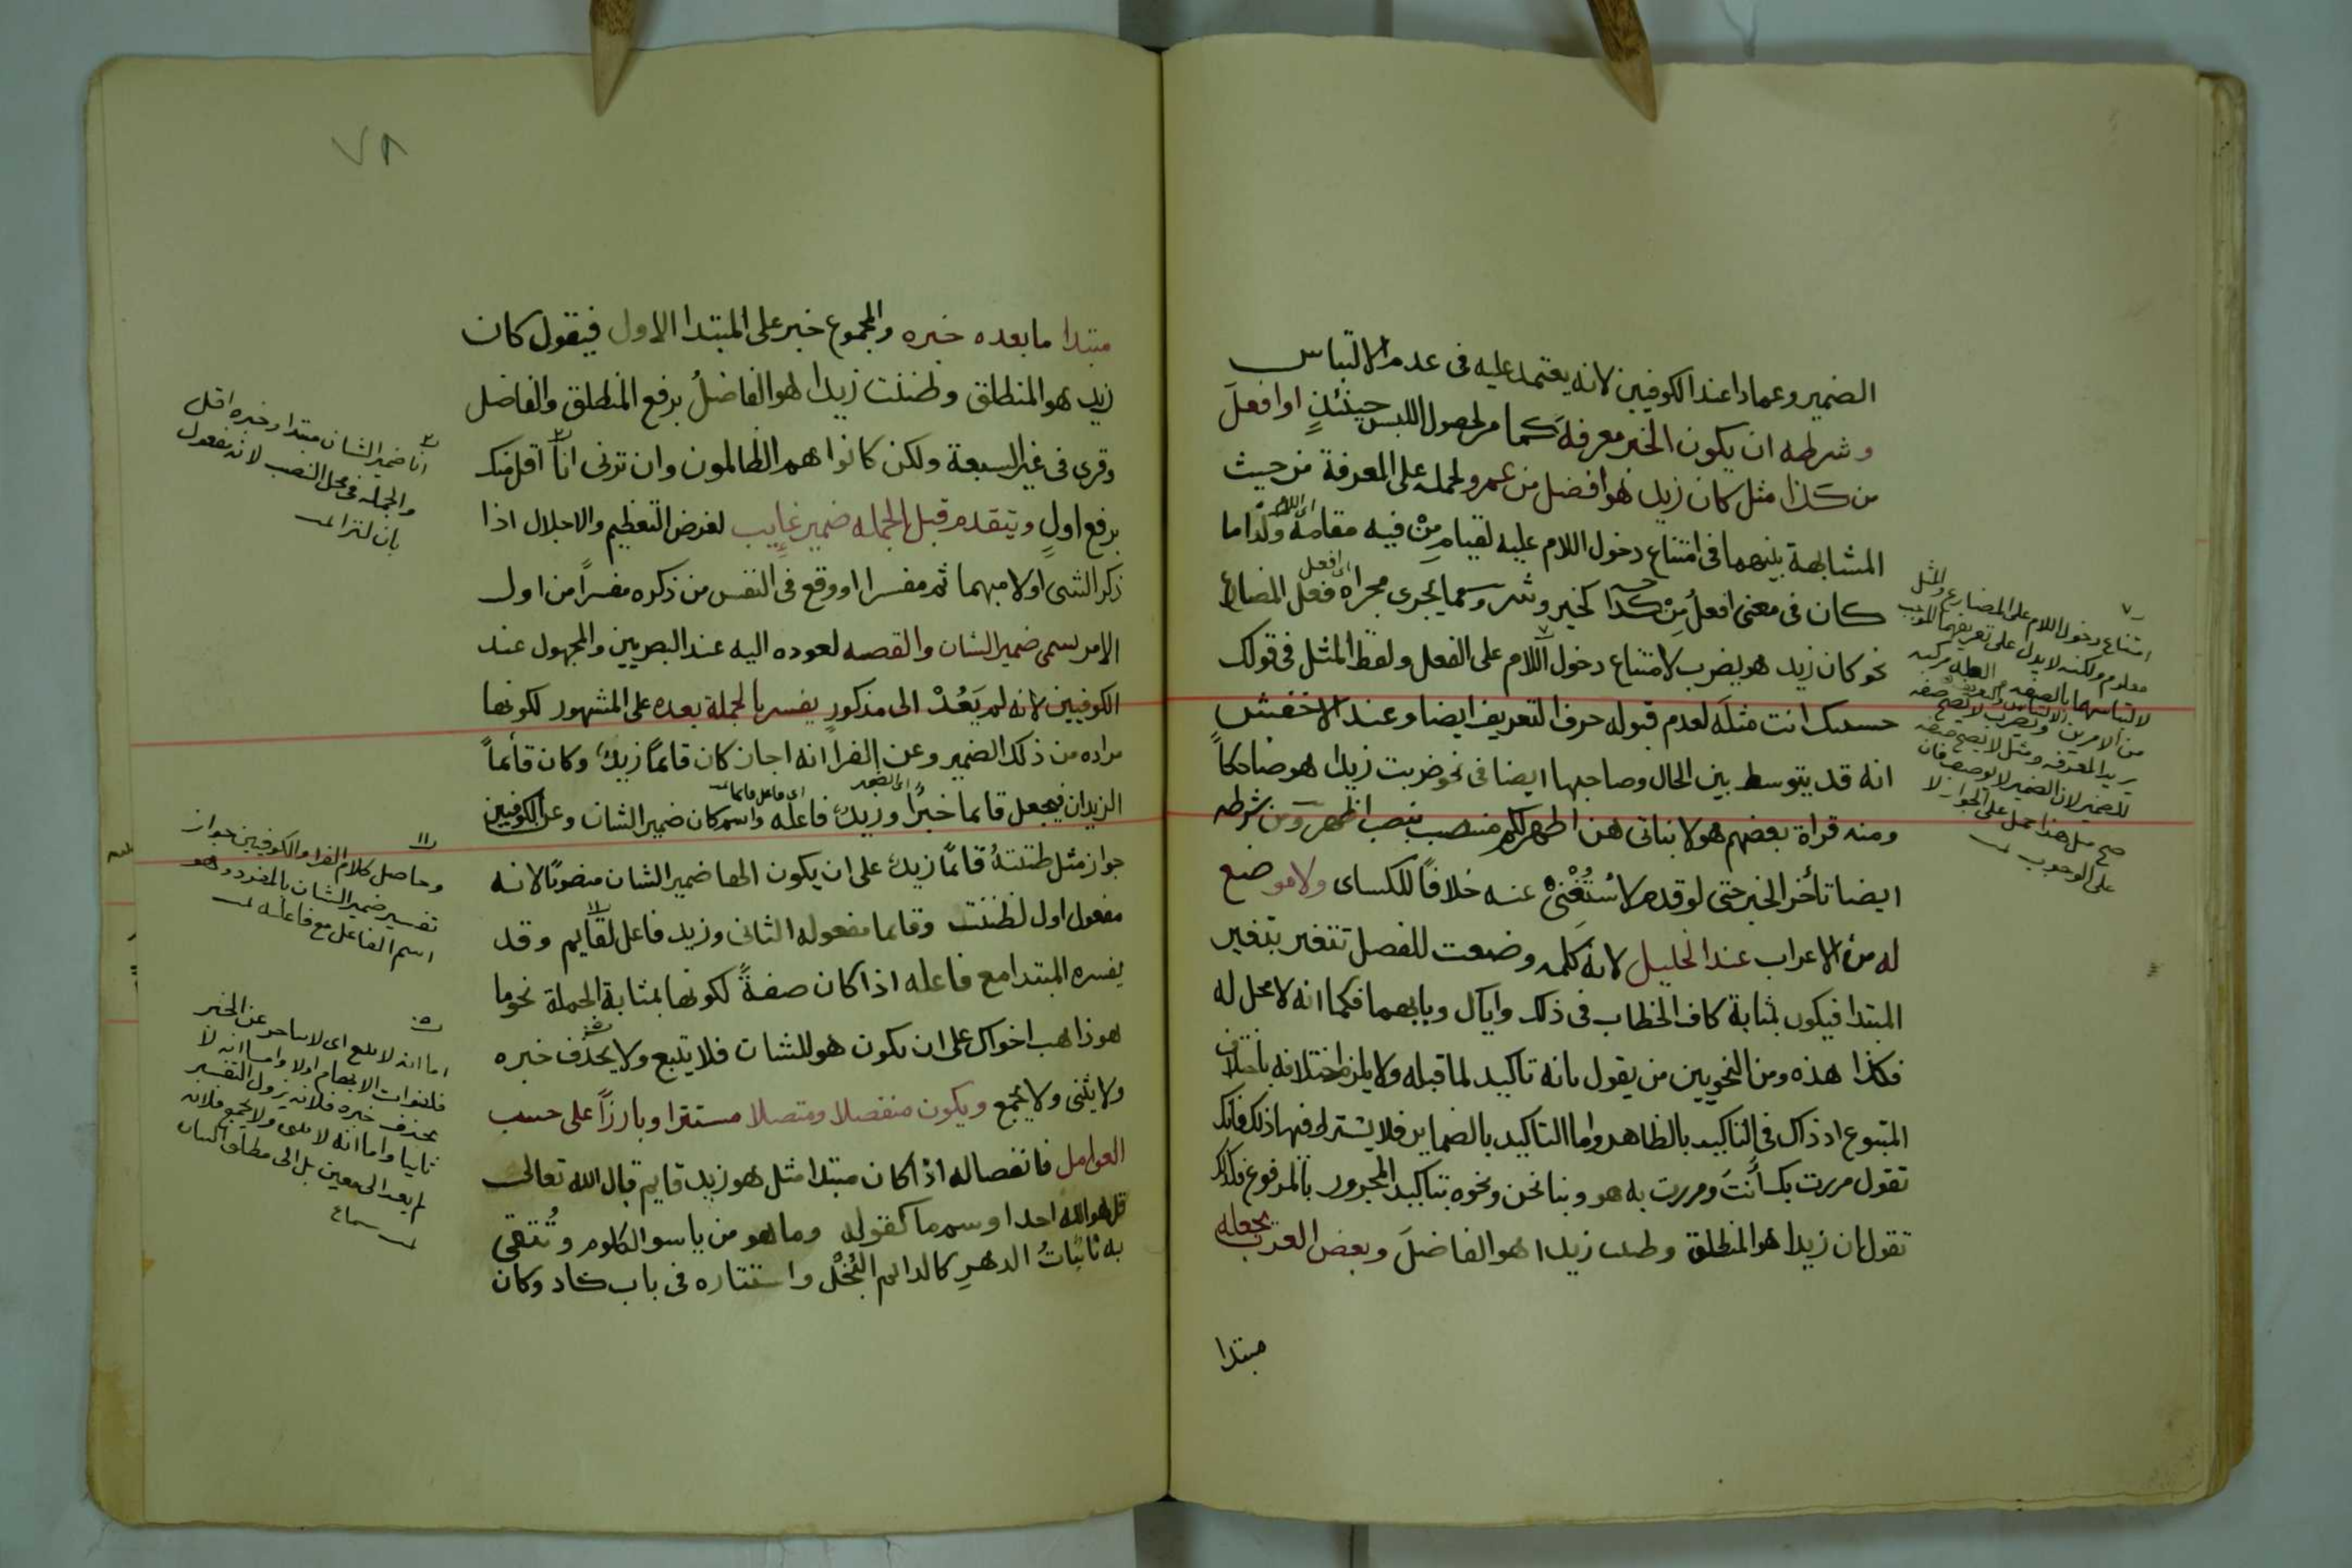 الضمير وعمادا عند الكوفيين لانه يعتمد عليه فى عدم الالتباس
وشرطه ان يكون الخبر معرفة كما مر لحصول اللبس حينئذٍ او افعلَ
من كذا مثل كان زيد هو افضل من عمرو لحمله على المعرفة من حيث
المشابهة بينهما فى امتناع دخول اللام عليه لقيام مِنْ فيه مقامه وكذا ما
اى اللام
كان فى معنى افعلُ مِنْ كذا كخير وشر ومما يجرى مجراه فعل المضارع
اى افعل
نحو كان زيد هو يضرب لامتناع دخول اللام على الفعل ولفظ المثل فى قولك
حسبك انت مثلَه لعدم قبوله حرف التعريف ايضا وعند الاخفش
انه قد يتوسط بين الحال وصاحبها ايضا فى نحو ضربت زيدا هو ضاحكاً
ومنه قراة بعضهم هولا بناتى هن اطهر لكم منتصب بنصب اظهر ومن شرطه
ايضا تأخر الخبر حتى لو قدم لاسْتُغْنِىَ عنه خلافاً للكساى ولا موضع
له من الاعراب عند الخليل لانه كلمه وضعت للفصل تتغير بتغير
المبتدا فيكون بمثابة كاف الخطاب فى ذلك واياك وبابهما فكما انه لا محل له
فكذا هذه ومن النحويين من يقول بانه تاكيد لما قبله ولا يلزم اختلافه باختلاف
المتبوع اذ ذاك فى التاكيد بالظاهر واما التاكيد بالضماير فلا يشترط فيها ذلك فانك
تقول مررت بك أَنتَ ومررت به هو وبنا نحن ونحوه بتاكيد المجرور بالمرفوع فكذلك
تقول ان زيدا هو المنطلق وظننت زيدا هو الفاضلَ وبعض العرب يجعله
مبتدا
٧
امتناع دخول اللام على المضارع والمثل
معلوم ولكنه لا يدل على تعريفهما الموجب
لالتباسهما بالصفه
من الامرين الالتباس
يريد المعرفه ومثل لا يصح صفه
للضمير لان الضمير لا يوصف فان
صح مثل هذا حمل على الجواز لا
على الوجوب
٧٨
مبتدا ما بعده خبره والمجموع خبر على المبتدا الاول فيقول كان
زيد هو المنطلق وظننت زيدا هو الفاضلُ برفع المنطلق والفاضل
وقرى فى غير السبعة ولكن كانوا هم الظالمون وان ترنى انا اقل منك
برفع اولٍ ويتقدم قبل الجمله ضمير غايب لغرض التعظيم والاجلال اذا
ذكر الشى اولا مبهما ثم مفسرا اوقع فى النفس من ذكره مفسراً من اول
الامر يسمى ضمير الشان والقصه لعوده اليه عند البصريين والمجهول عند
الكوفيين لانه لم يَعُدْ الى مذكورٍ يفسر بالجملة بعده على المشهور لكونها
مراده من ذلك الضمير وعن الفرا انه اجاز كان قائماً زيدٌ وكان قائماً
الزيدان فيجعل قايما خبرًا وزيدٌ فاعله واسم كان ضمير الشان وعن الكوفيين
اى الضمير
اى فاعل قايما
جواز مثل ظننتهُ قائمًا زيدٌ على ان يكون الها ضمير الشان منصوبًا لانه
مفعول اول لظننت وقايما مفعوله الثانى وزيد فاعل لقايم وقد
يفسره المبتدا مع فاعله اذا كان صفةً لكونها بمثابة الجملة نحو ما
هو ذاهب اخواك على ان يكون هو للشان فلا يتبع ولا يحذف خبره
ولا يثنى ولا يجمع ويكون منفصلا ومتصلا مستترا وبارزاً على حسب
العوامل فانفصاله اذا كان مبتدا مثل هو زيد قايم قال الله تعالى
قل هو الله احد او سم ما كقوله وما هو من ياسو الكلوم وتُتقى
به نائباتُ الدهرِ كالدايم البُخْل واستتاره فى باب كاد وكان
٢
انا ضمير الشان مبتدا وخبره اقل
والجمله فى محل النصب لانه مفعول
ثان لترانى
١١
وحاصل كلام الفرا والكوفيين جواز
تفسير ضمير الشان بالمفرد وهو
اسم الفاعل مع فاعله
٥
اما انه لا يتبع اى لا يتاخر عن الخبر
فلفوات الابهام اولا واما انه لا
يحذف خبره فلانه يزول التفسير
ثانيا واما انه لا يثنى ولا يجمع فلانه
لم يعد الى معين بل الى مطلق الشان
سماع